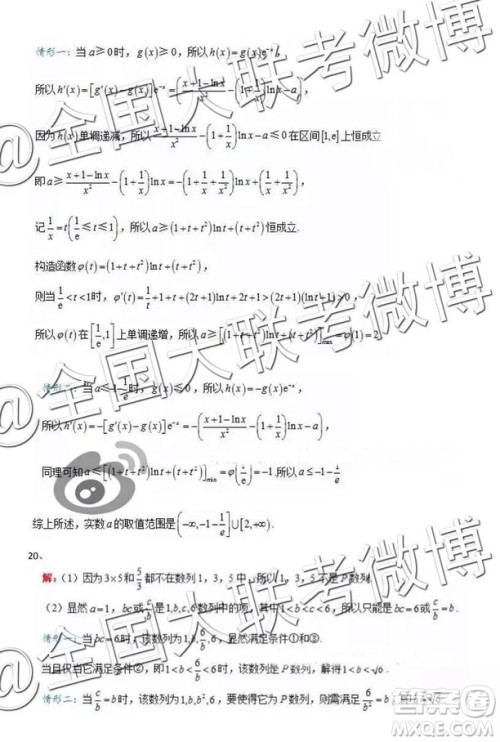 情形一：当a≥0时，g(x)≥0，所以h(x)=g(x)e^{-x}，
所以h'(x)=[g'(x)-g(x)]e^{-x}=(\frac{x+1-\ln x}{x^2}-(1+\frac{1}{x})\ln x-a)
因为h(x)单调递减，所以\frac{x+1-\ln x}{x^2}-(1+\frac{1}{x})\ln x-a≤0在区间[1,e]上恒成立
即a≥\frac{x+1-\ln x}{x^2}-(1+\frac{1}{x})\ln x=-(1+\frac{1}{x}+\frac{1}{x^2})
记\frac{1}{x}=t(\frac{1}{e}≤t≤1)，所以a≥(1+t+t^2)lnt+(t+t^2)恒成立.
构造函数φ(t)=(1+t+t^2)lnt+(t+t^2)，
则当\frac{1}{e}<t<1时，φ'(t)=\frac{1}{t}+1+t+(2t+1)lnt+2t+1>(2t+1)(lnt+1)>0，
所以φ(t)在[\frac{1}{e},1]上单调递增，所以a≥[(1+t+t^2)lnt+(t+t^2)]=φ(1)=2
情形二：当a≤-1-\frac{1}{e}时，g(x)≤0，所以h(x)=-g(x)e^{-x}，
所以h'(x)=-[g'(x)-g(x)]e^{-x}=-(\frac{x+1-\ln x}{x^2}-(1+\frac{1}{x})\ln x-a)
同理可知a≤[(1+t+t^2)lnt+(t+t^2)]_{min}=φ(\frac{1}{e})=-1.所以a≤-1-\frac{1}{e}
综上所述，实数a的取值范围是(-∞,-1-\frac{1}{e}]∪[2,+∞).
20、
解：（1）因为3×5和\frac{5}{3}都不在数列1，3，5中，所以1，3，5不是P数列
（2）显然a=1，bc或\frac{c}{b}是1,b,c,6数列中的项，其中1<b<c<6，所以只能是bc=6或\frac{c}{b}=b.
情形一：当bc=6时，该数列为1,b,\frac{6}{b},6，显然满足条件①和③.
当且仅当它满足条件②，即1<b<\frac{6}{b}<6时，该数列是P数列，解得1<b<√6.
情形二：当\frac{c}{b}=b时，该数列为1,b,b^2,6，要使得它为P数列，则需满足\frac{6}{b^2}=b
@全国大联考微博
@全国大联考微博
答案圈